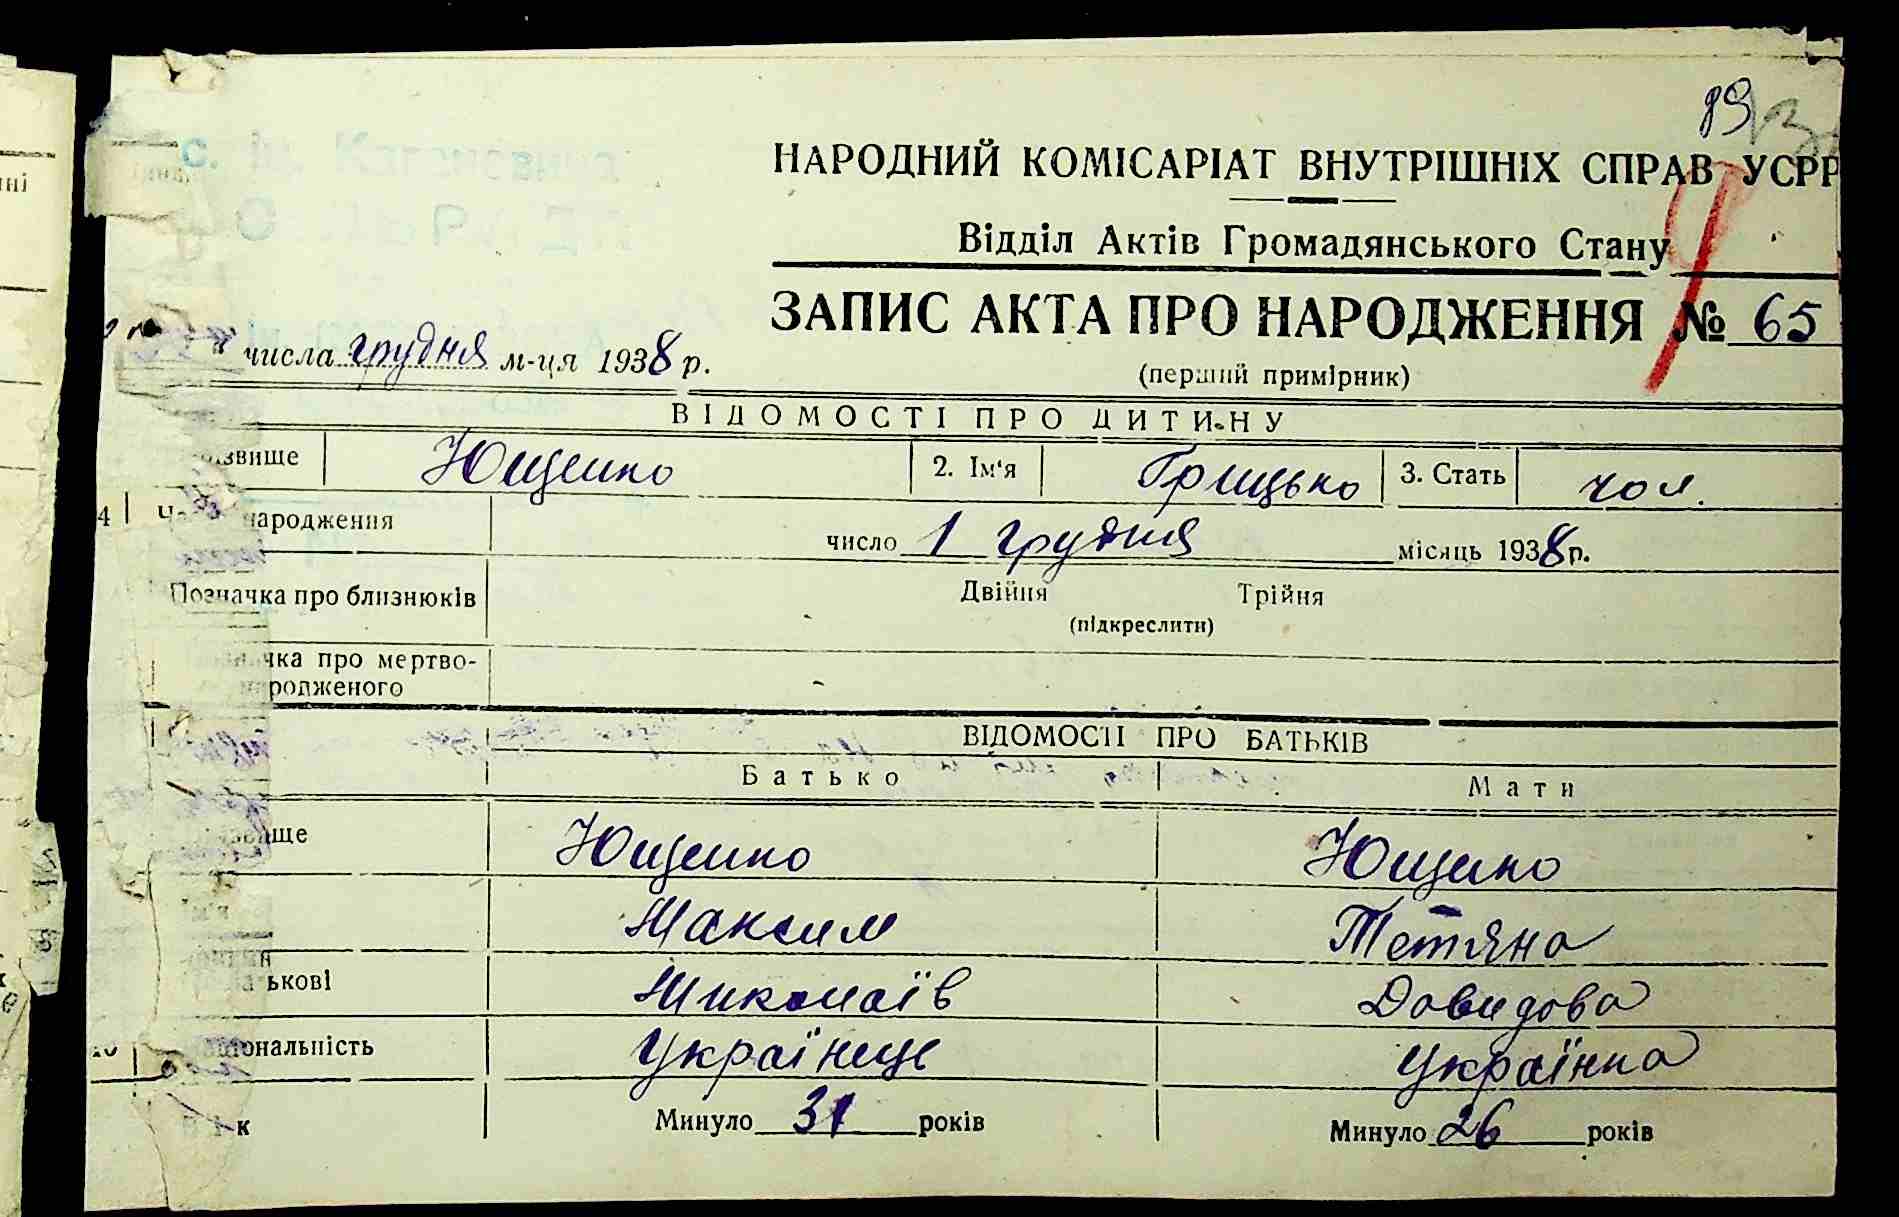 89
НАРОДНИЙ КОМІСАРІАТ ВНУТРІШНІХ СПРАВ УСРР
Відділ Актів Громадянського Стану
ЗАПИС АКТА ПРО НАРОДЖЕННЯ № 65
(перший примірник)
числа грудня м-ця 1938 р.
ВІДОМОСТІ ПРО ДИТИНУ
звище Ющенко 2. Ім'я Грицько 3. Стать чол.
4 народження число 1 грудня місяць 1938 р.
Позначка про близнюків Двійня Трійня
(підкреслити)
чка про мертво-
родженого
ВІДОМОСТІ ПРО БАТЬКІВ
Батько Мати
ще Ющенко Ющенко
Ім'я Максим Тетяна
ькові Миколаїв Давидова
ціональність Українець Українка
к Минуло 31 років Минуло 26 років